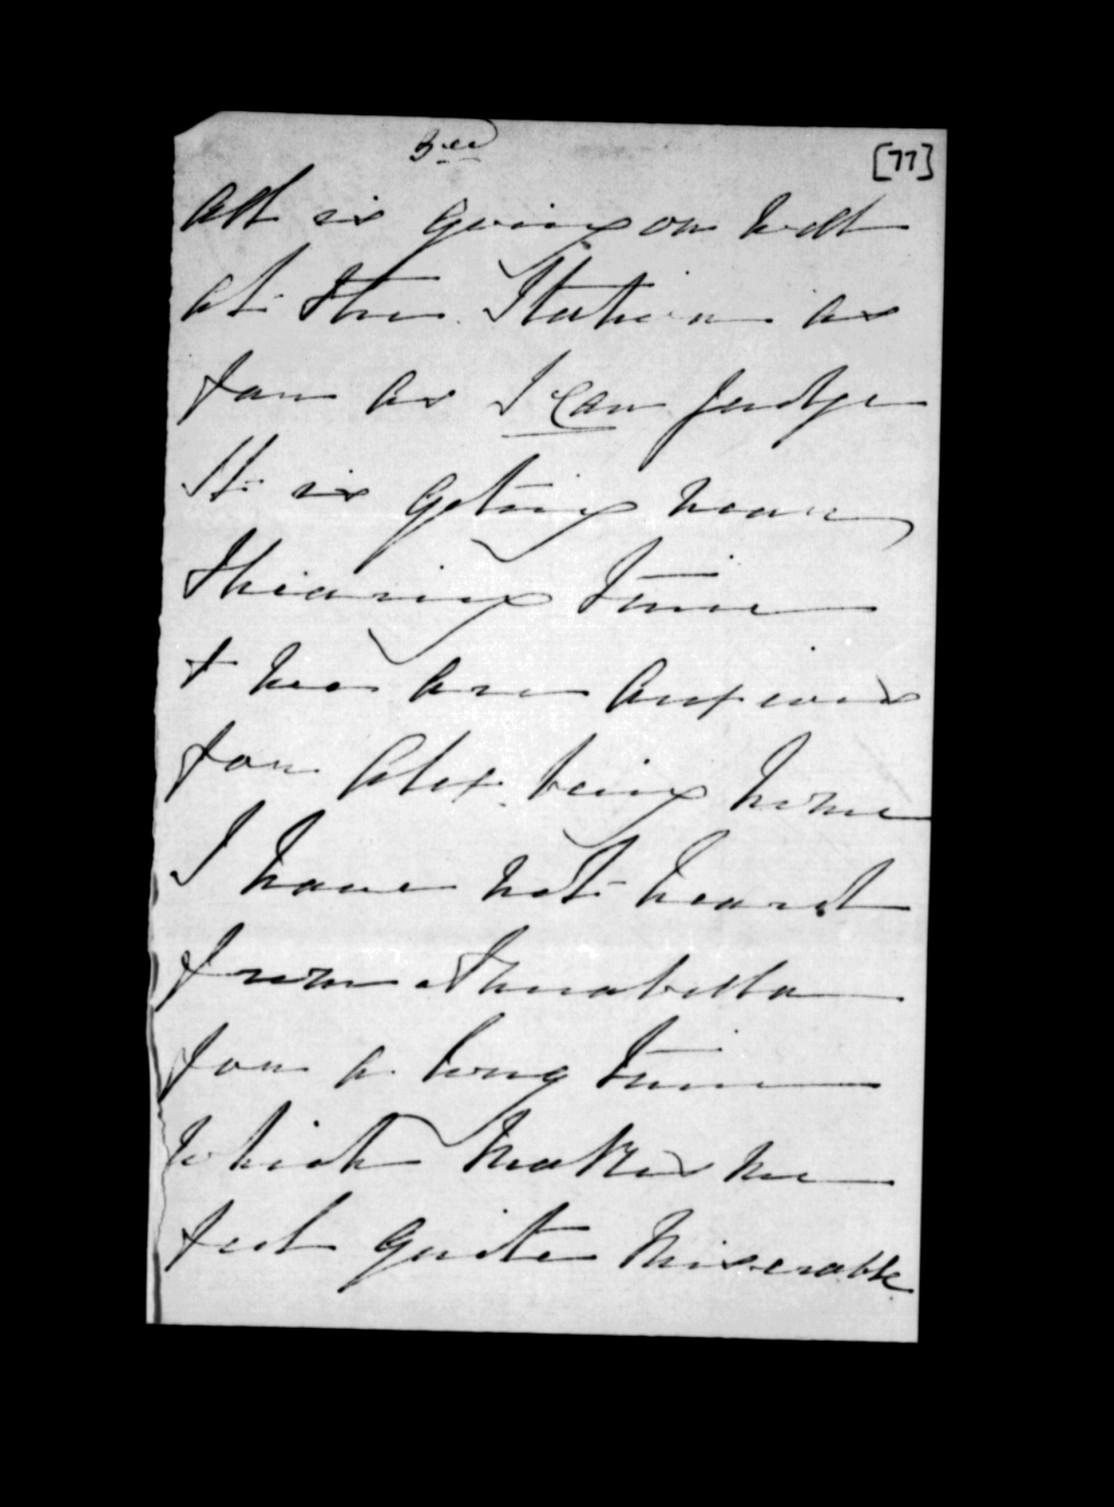 3rd
[77]
All is going on well
at the Station as
far as I can judge
It is geting near
Shearing time
& we are anxious
for Alex being home
I have not heard
from Annabella
for a long time
which makes me
feel quite miserable